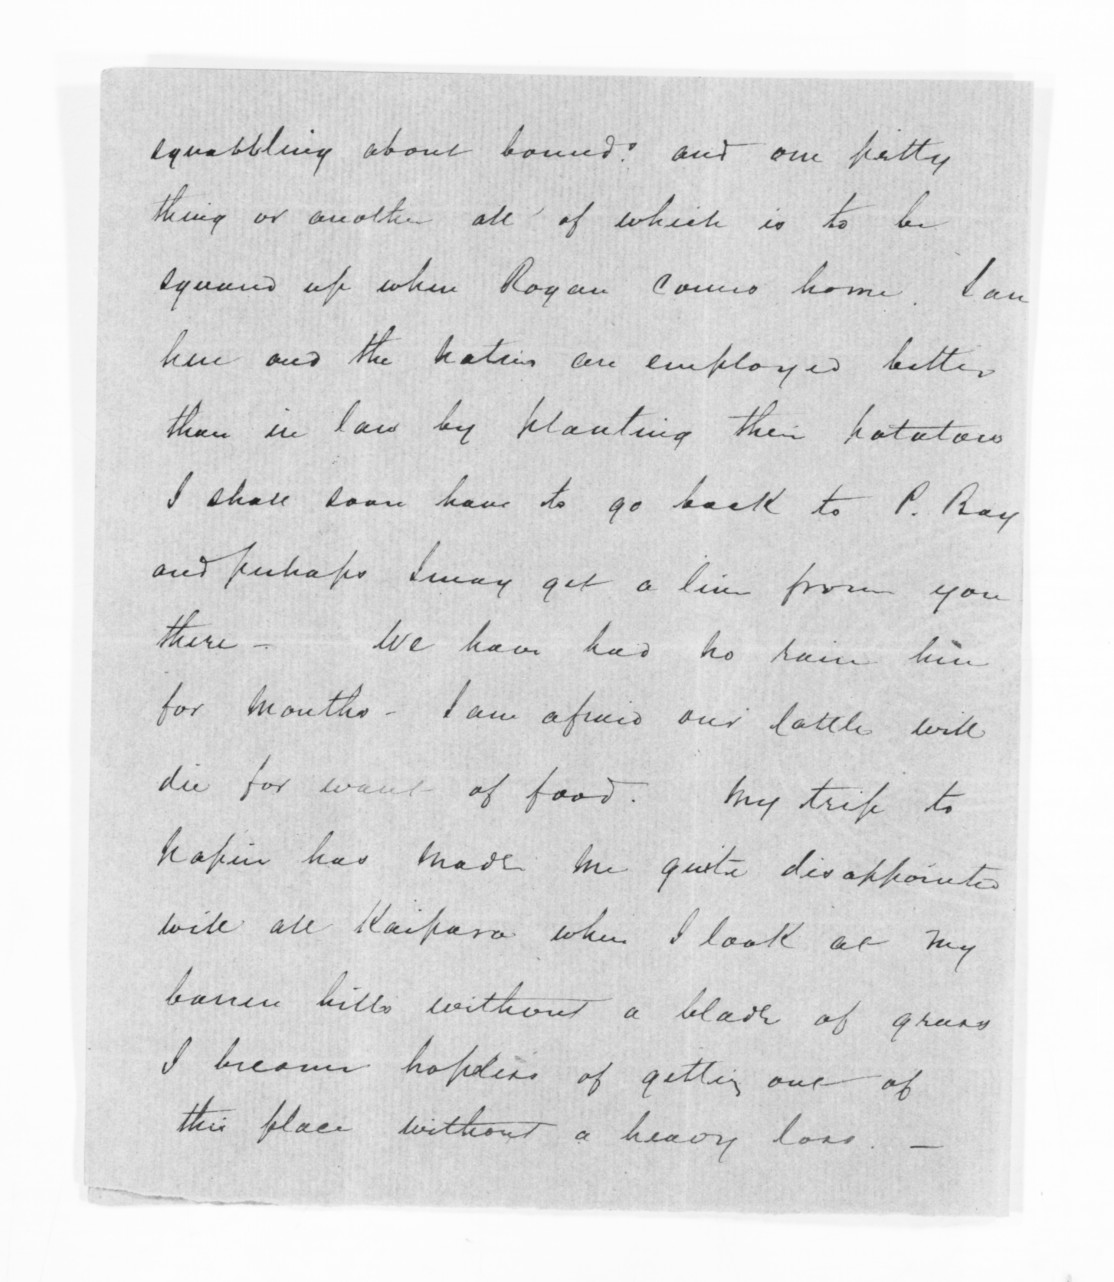 squabbling about bound.s and one petty
thing or another all of which is to be
squared up when Rogan comes home. I am
here and the natives are employed better
than in law by planting their potatoes
I shall soon have to go back to P. Bay
and perhaps I may get a line from you
there – We have had no rain here
for months – I am afraid our cattle will
die for want of food. My trip to
Napier has made me quite disappointed
with all Kaipara when I look at my
barren hills without a blade of grass
I become hopeless of getting out of
this place without a heavy loss. –